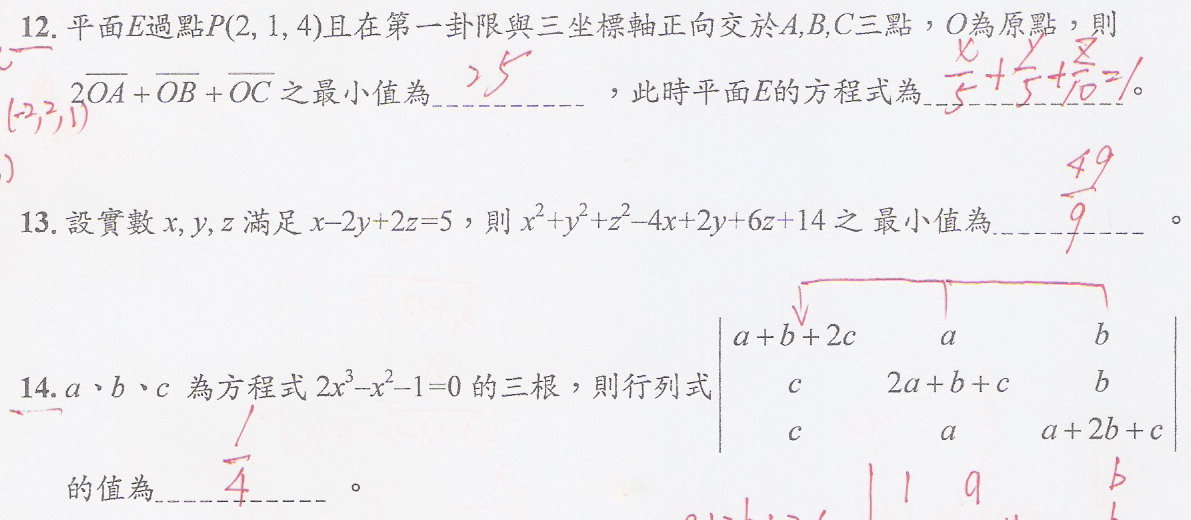 12. 平面E過點P(2, 1, 4)且在第一卦限與三坐標軸正向交於A,B,C三點，O為原點，則
2OA + OB + OC 之最小值為 25 ，此時平面E的方程式為 x/5 + y/5 + z/10 = 1。
(-2,2,1)
)
13. 設實數 x, y, z 滿足 x–2y+2z=5，則 x²+y²+z²–4x+2y+6z+14 之 最小值為 49/9 。
a+b+2c a b
14. a、b、c 為方程式 2x³–x²–1=0 的三根，則行列式 c 2a+b+c b
c a a+2b+c
的值為 1/4 。
1 a b